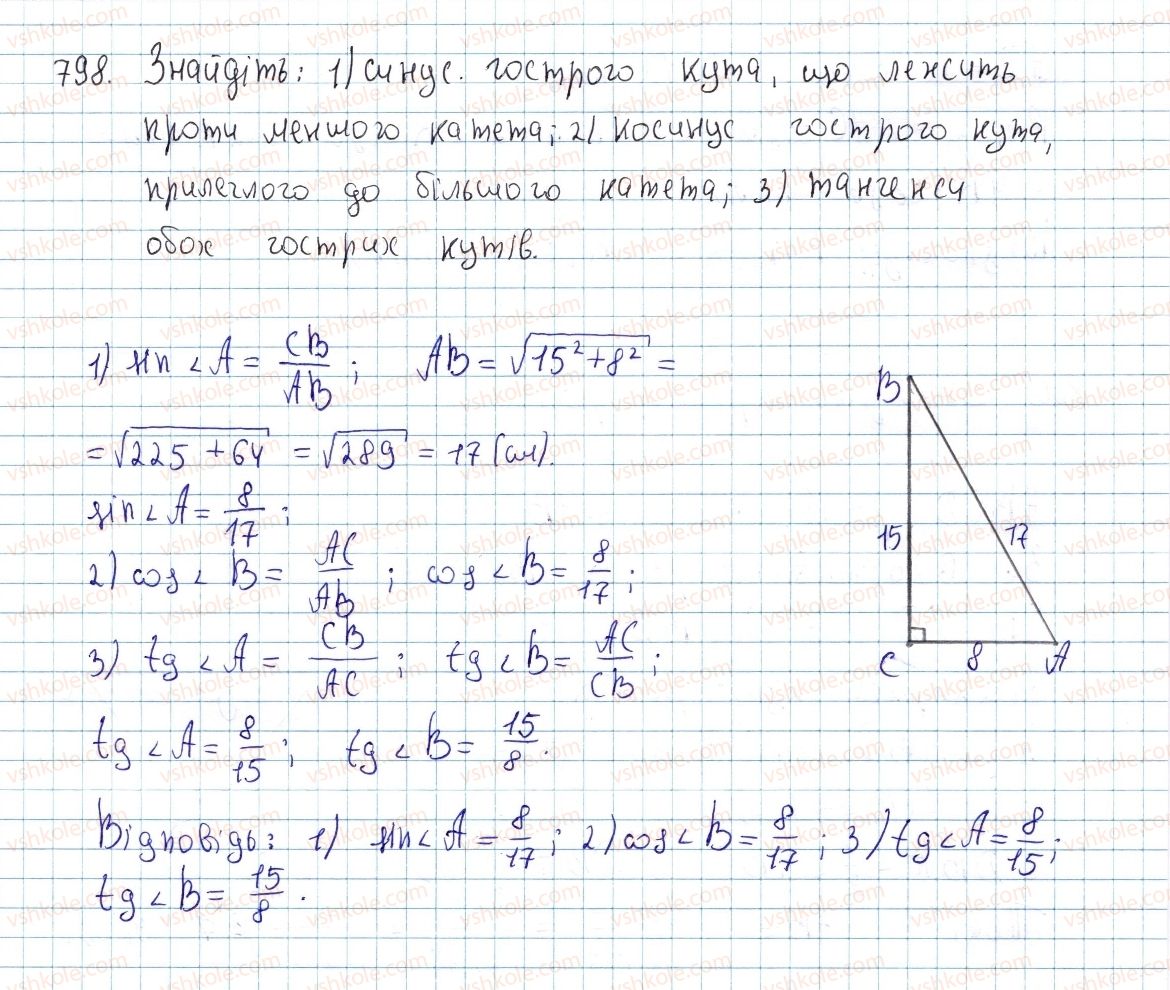 798. Знайдіть: 1) синус гострого кута, що лежить
проти меншого катета; 2) косинус гострого кута,
прилеглого до більшого катета; 3) тангенси
обох гострих кутів.
1) sin < A = CB/AB ; AB = √(15² + 8²) =
= √(225 + 64) = √289 = 17 (см).
sin < A = 8/17 ;
2) cos < B = AC/AB ; cos < B = 8/17 ;
3) tg < A = CB/AC ; tg < B = AC/CB ;
tg < A = 8/15 ; tg < B = 15/8 .
Відповідь: 1) sin < A = 8/17 ; 2) cos < B = 8/17 ; 3) tg < A = 8/15 ;
tg < B = 15/8 .
B
15
17
C
8
A
vshkole.com